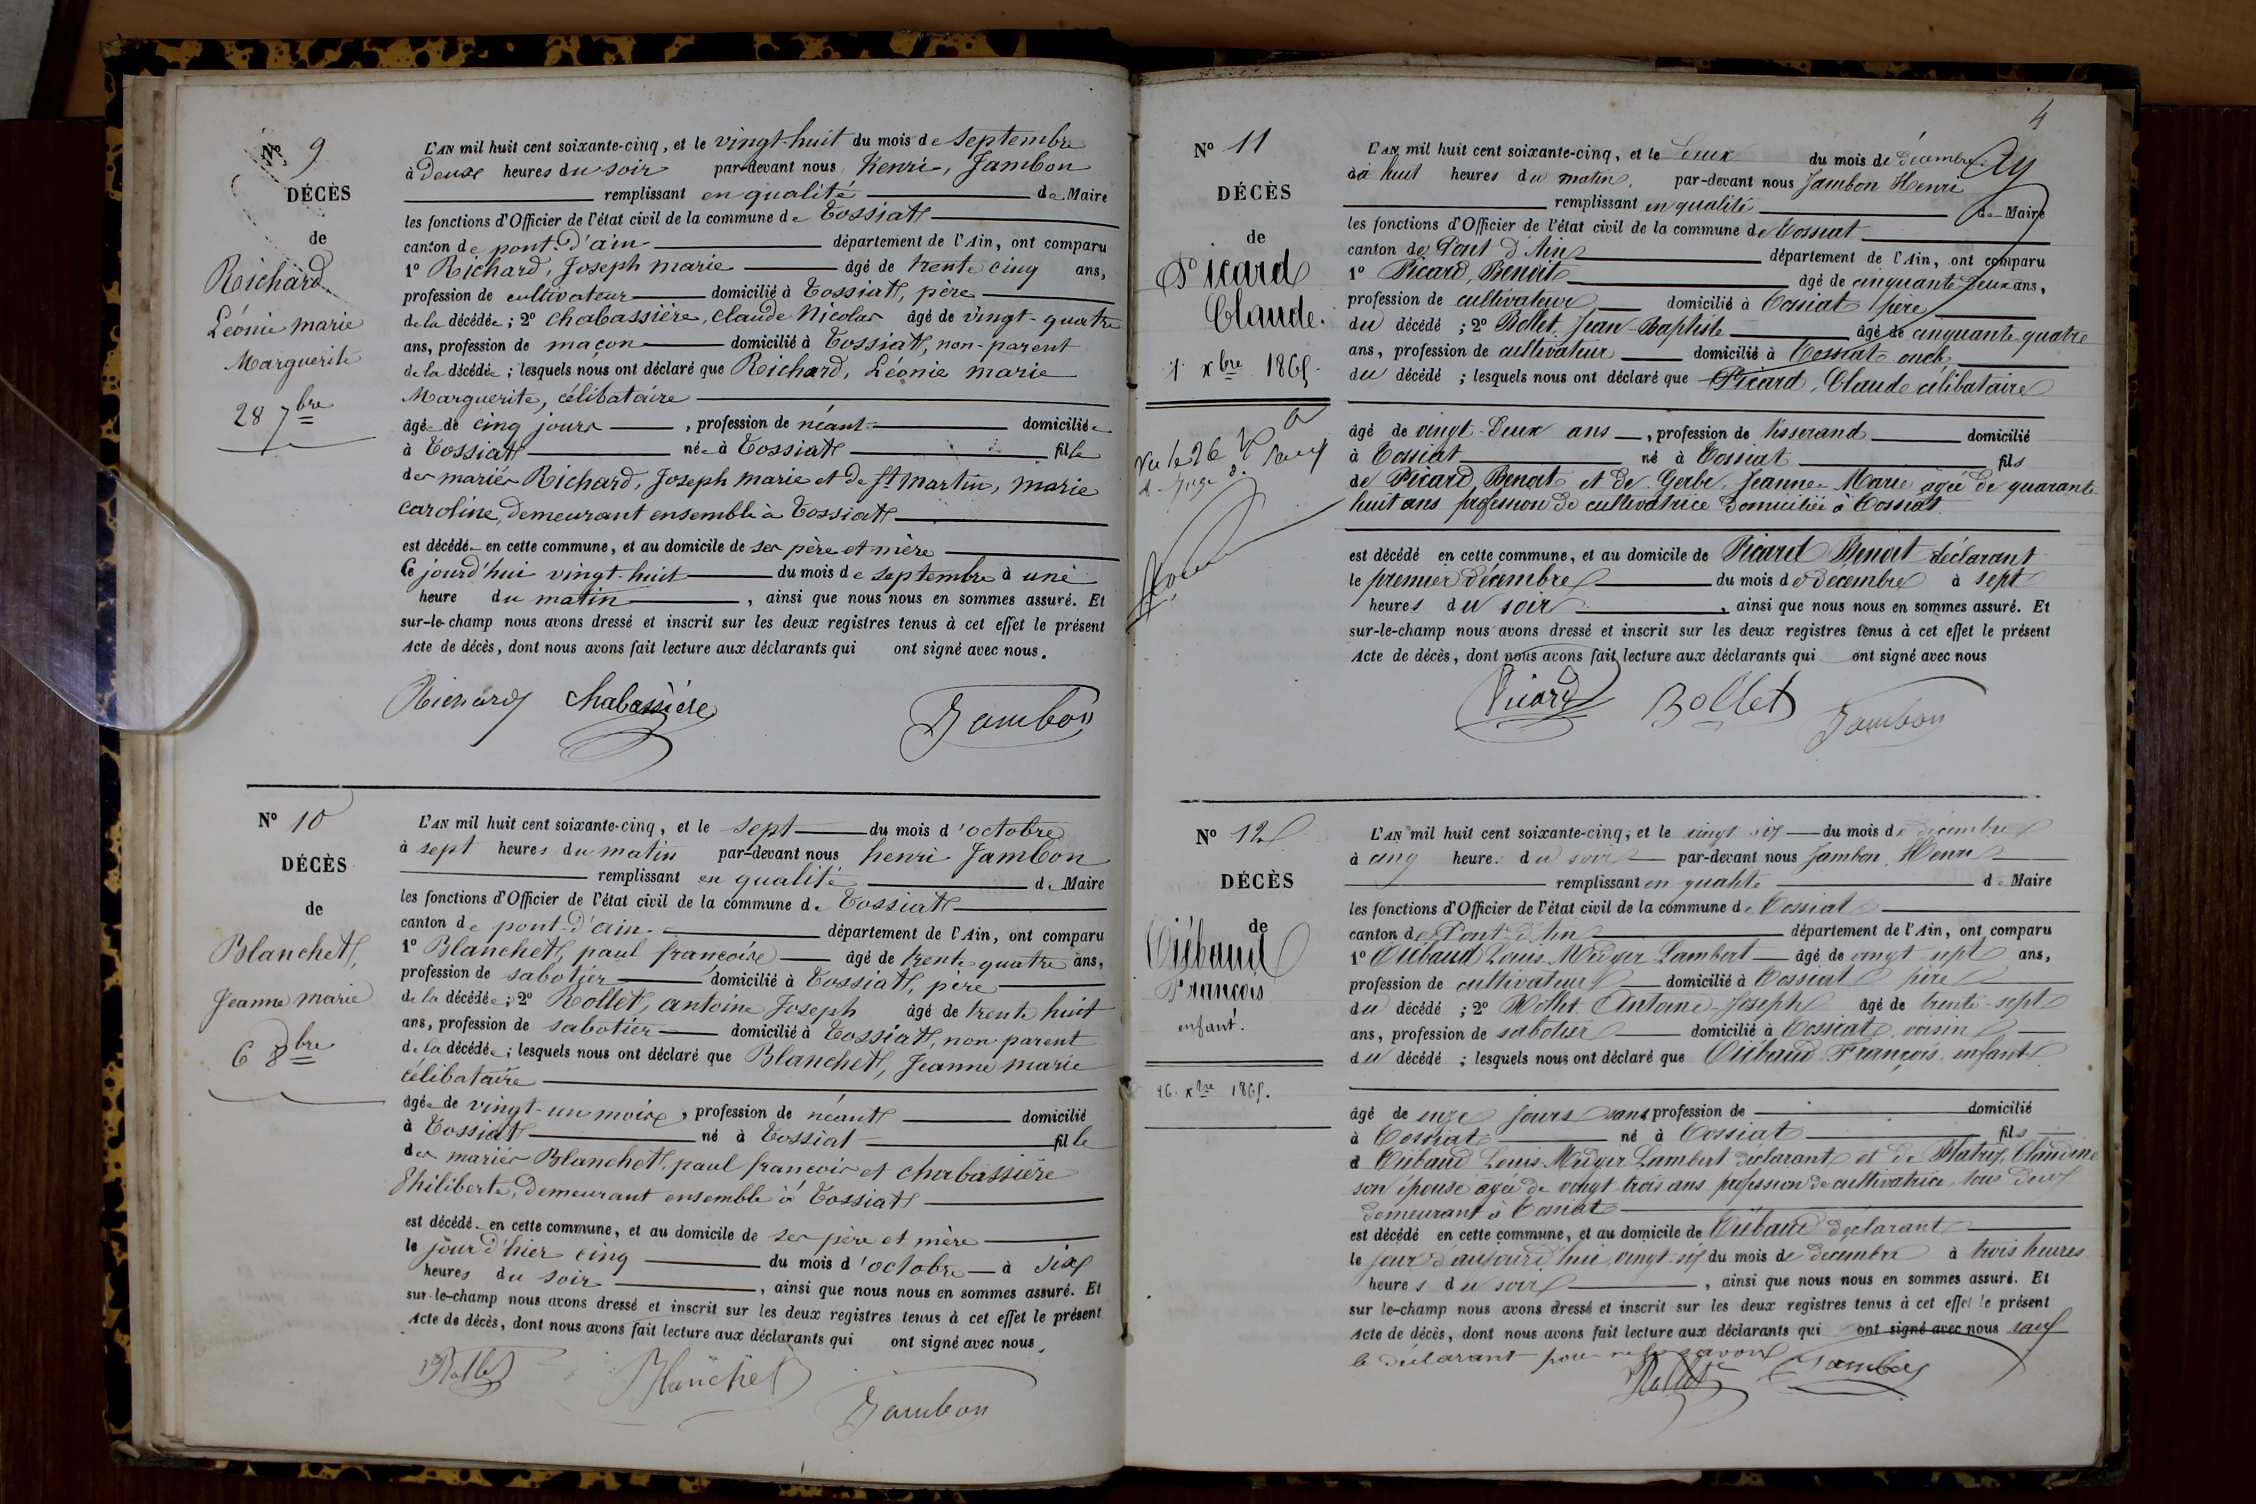 Nº 9
DÉCÈS
de
Richard
Léonie marie
Marguerite
28 7bre
L'AN mil huit cent soixante-cinq, et le vingt-huit du mois de septembre
à deux heures du soir par-devant nous Henri, Jambon
remplissant en qualité de Maire
les fonctions d'Officier de l'état civil de la commune de Tossiat
canton de pont-d'ain département de l'Ain, ont comparu
1º Richard, Joseph marie âgé de trente cinq ans,
profession de cultivateur domicilié à Tossiat, père
de la décédée ; 2º chabassière, claude Nicolas âgé de vingt-quatre
ans, profession de maçon domicilié à Tossiat, non-parent
de la décédée ; lesquels nous ont déclaré que Richard, Léonie marie
Marguerite, célibataire
âgé de cinq jours, profession de néant domiciliée
à Tossiat née à Tossiat fille
des mariés Richard, Joseph marie et de St martin, marie
caroline, demeurant ensemble à Tossiat
est décédé en cette commune, et au domicile de ses père et mère
Ce jourd'hui vingt-huit du mois de septembre à une
heure du matin, ainsi que nous nous en sommes assuré. Et
sur-le-champ nous avons dressé et inscrit sur les deux registres tenus à cet effet le présent
Acte de décès, dont nous avons fait lecture aux déclarants qui ont signé avec nous.
Richard chabassière Jambon
Nº 10
DÉCÈS
de
Blanchet,
Jeanne marie
6 8bre
L'AN mil huit cent soixante-cinq, et le sept du mois d'octobre
à sept heures du matin par-devant nous henri Jambon
remplissant en qualité de Maire
les fonctions d'Officier de l'état civil de la commune de Tossiat
canton de pont-d'ain département de l'Ain, ont comparu
1º Blanchet, paul françois âgé de trente quatre ans,
profession de sabotier domicilié à Tossiat, père
de la décédée ; 2º Rollet, antoine Joseph âgé de trente huit
ans, profession de sabotier domicilié à Tossiat, non parent
de la décédée ; lesquels nous ont déclaré que Blanchet, Jeanne marie
célibataire
âgée de vingt-un mois, profession de néant domicilié
à Tossiat né à Tossiat fille
des mariés Blanchet, paul françois et chabassière
Philiberte, demeurant ensemble à Tossiat
est décédé en cette commune, et au domicile de ses père et mère
le jour d'hier cinq du mois d'octobre à six
heures du soir, ainsi que nous nous en sommes assuré. Et
sur-le-champ nous avons dressé et inscrit sur les deux registres tenus à cet effet le présent
Acte de décès, dont nous avons fait lecture aux déclarants qui ont signé avec nous.
Rollet Blanchet Jambon
4
Nº 11
DÉCÈS
de
Picard
Claude.
1 xbre 1865.
Vu le 26
L'AN mil huit cent soixante-cinq, et le Deux du mois de décembre
à huit heures du matin, par-devant nous Jambon Henri
remplissant en qualité de Maire
les fonctions d'Officier de l'état civil de la commune de Tossiat
canton de Pont d'Ain département de l'Ain, ont comparu
1º Picard, Benoit âgé de cinquante Deux ans,
profession de cultivateur domicilié à Tossiat père
du décédé ; 2º Bollet, Jean-Baptiste âgé de cinquante quatre
ans, profession de cultivateur domicilié à Tossiat oncle
du décédé ; lesquels nous ont déclaré que Picard, Claude célibataire
âgé de vingt-Deux ans, profession de tisserand domicilié
à Tossiat né à Tossiat fils
de Picard Benoit et de Gerbe, Jeanne Marie âgée de quarante
huit ans profession de cultivatrice domiciliée à Tossiat.
est décédé en cette commune, et au domicile de Picard Benoit déclarant
le premier décembre du mois de decembre à sept
heures du soir, ainsi que nous nous en sommes assuré. Et
sur-le-champ nous avons dressé et inscrit sur les deux registres tenus à cet effet le présent
Acte de décès, dont nous avons fait lecture aux déclarants qui ont signé avec nous
Picard Bollet Jambon
Nº 12
DÉCÈS
de
Thébaud
François
enfant.
26 xbre 1865.
L'AN mil huit cent soixante-cinq, et le vingt six du mois de décembre
à cinq heure du soir par-devant nous Jambon, Henri
remplissant en qualité de Maire
les fonctions d'Officier de l'état civil de la commune de Tossiat
canton de Pont-d'Ain département de l'Ain, ont comparu
1º Thébaud Louis Lambert âgé de vingt sept ans,
profession de cultivateur domicilié à Tossiat père
du décédé ; 2º Rollet Antoine-Joseph âgé de trente sept
ans, profession de sabotier domicilié à Tossiat, voisin
du décédé ; lesquels nous ont déclaré que Thébaud François, enfant
âgé de onze jours sans profession de domicilié
à Tossiat né à Tossiat fils
Thébaud Louis Lambert déclarant et de Claudine
son épouse agée de vingt trois ans profession de cultivatrice, tous deux
demeurant à Tossiat
est décédé en cette commune, et au domicile de Thébaud déclarant
le jour d'aujourd'hui, vingt-six du mois de décembre à trois heures
heures du soir, ainsi que nous nous en sommes assuré. Et
sur le-champ nous avons dressé et inscrit sur les deux registres tenus à cet effet le présent
Acte de décès, dont nous avons fait lecture aux déclarants qui ont signé avec nous sauf
le déclarant pour ne le savoir
Rollet Jambon